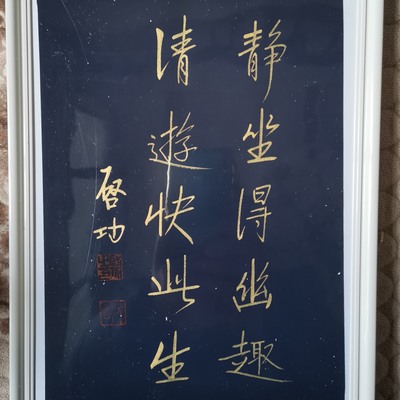 静坐得幽趣
清遊快此生
啓功